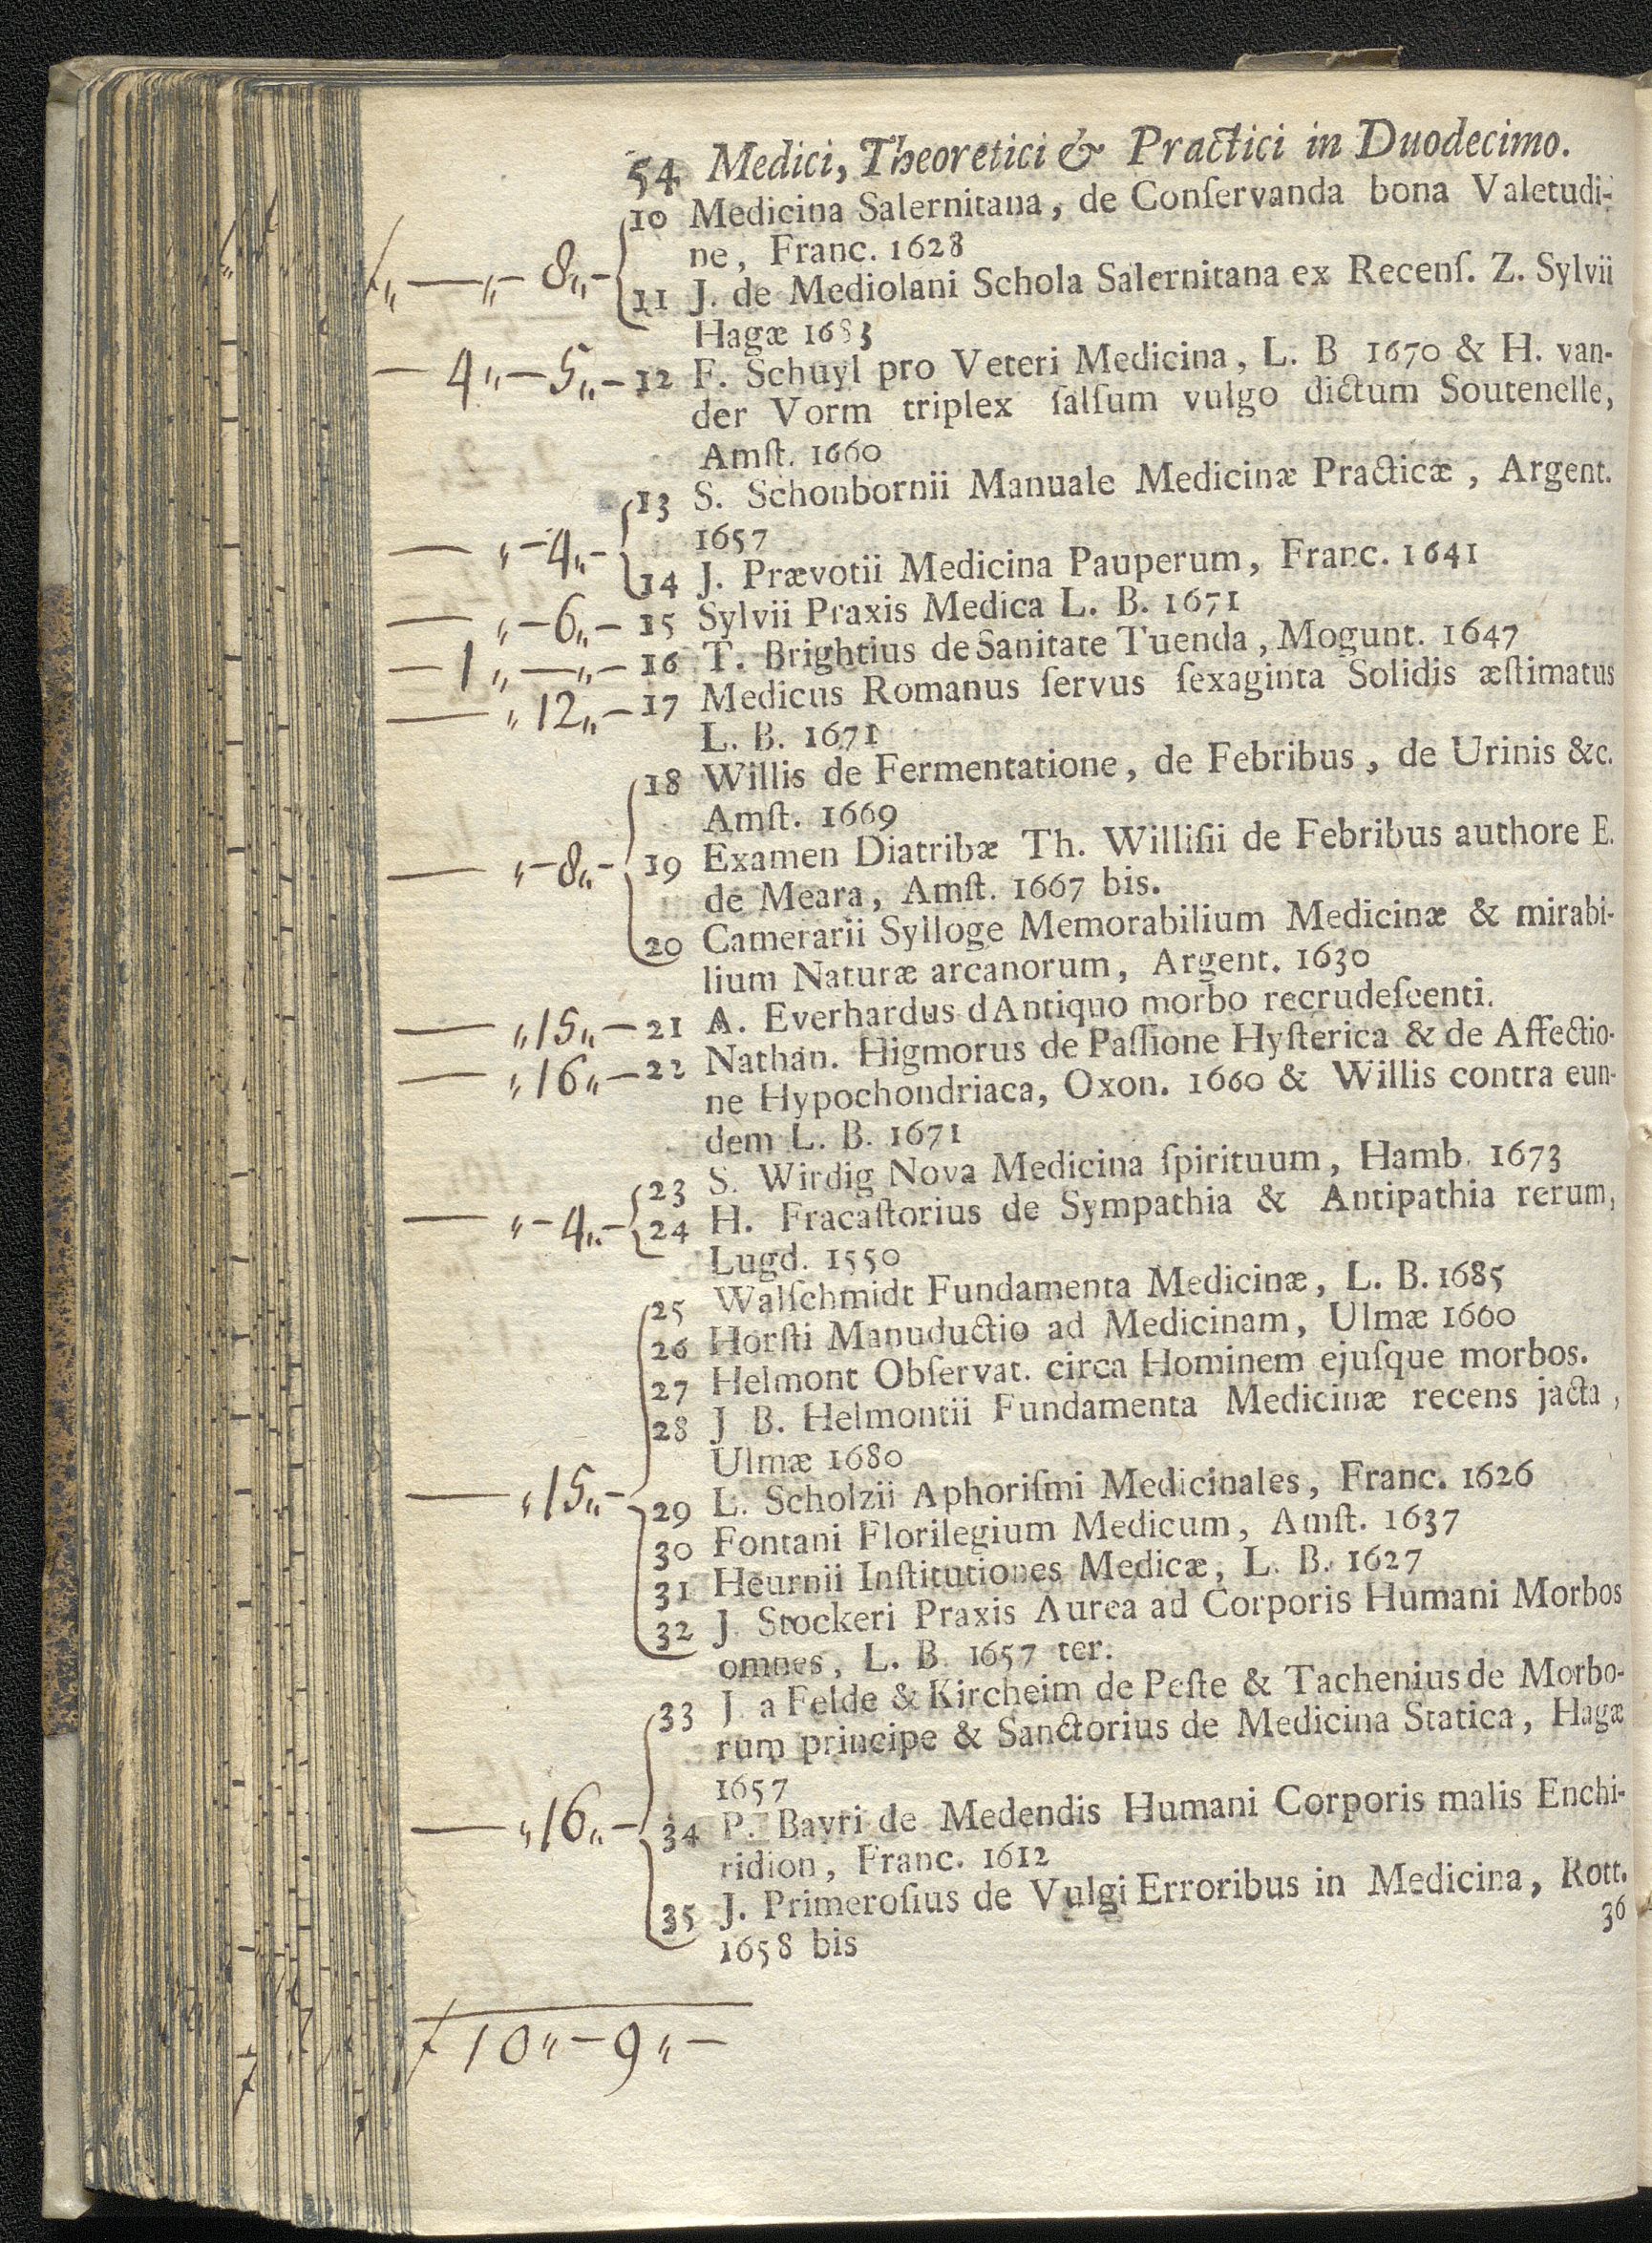 54 Medici, Theoretici & Practici in Duodecimo.
10 Medicina Salernitana, de Conſervanda bona Valetudi-
ne, Franc. 1628
ƒ„ — „ – 8„ –
11 J. de Mediolani Schola Salernitana ex Recenſ. Z. Sylvii
Hagæ 1683
— 4„ – 5„ – 12 F. Schuyl pro Veteri Medicina, L. B 1670 & H. van-
der Vorm triplex ſalſum vulgo dictum Soutenelle,
Amſt. 1660
13 S. Schonbornii Manuale Medicinæ Practicæ, Argent.
1657
— „ – 4„ –
14 J. Prævotii Medicina Pauperum, Franc. 1641
— „ – 6„ – 15 Sylvii Praxis Medica L. B. 1671
— 1„ — „ – 16 T. Brightius de Sanitate Tuenda, Mogunt. 1647
— „ 12„ – 17 Medicus Romanus ſervus ſexaginta Solidis æſtimatus
L. B. 1671
18 Willis de Fermentatione, de Febribus, de Urinis &c.
Amſt. 1669
— „ – 8„ – 19 Examen Diatribæ Th. Williſii de Febribus authore E.
de Meara, Amſt. 1667 bis.
20 Camerarii Sylloge Memorabilium Medicinæ & mirabi-
lium Naturæ arcanorum, Argent. 1630
— „ 15„ – 21 A. Everhardus d Antiquo morbo recrudeſcenti.
— „ 16„ – 22 Nathan. Higmorus de Paſſione Hyſterica & de Affectio-
ne Hypochondriaca, Oxon. 1660 & Willis contra eun-
dem L. B. 1671
23 S. Wirdig Nova Medicina ſpirituum, Hamb. 1673
— „ – 4„ – 24 H. Fracaſtorius de Sympathia & Antipathia rerum,
Lugd. 1550
25 Walſchmidt Fundamenta Medicinæ, L. B. 1685
26 Horſti Manuductio ad Medicinam, Ulmæ 1660
27 Helmont Obſervat. circa Hominem ejuſque morbos.
28 J B. Helmontii Fundamenta Medicinæ recens jacta,
Ulmæ 1680
— „ 15„ – 29 L. Scholzii Aphoriſmi Medicinales, Franc. 1626
30 Fontani Florilegium Medicum, Amſt. 1637
31 Heurnii Inſtitutiones Medicæ, L. B. 1627
32 J. Stockeri Praxis Aurea ad Corporis Humani Morbos
omnes, L. B. 1657 ter.
33 J. a Felde & Kircheim de Peſte & Tachenius de Morbo-
rum principe & Sanctorius de Medicina Statica, Hagæ
1657
— „ 16„ – 34 P. Bayri de Medendis Humani Corporis malis Enchi-
ridion, Franc. 1612
35 J. Primeroſius de Vulgi Erroribus in Medicina, Rott.
1658 bis
36
ƒ 10„ – 9„ –